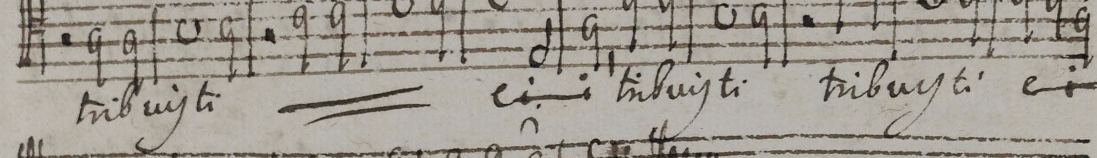 tribuisti ei tribuisti tribuisti ei